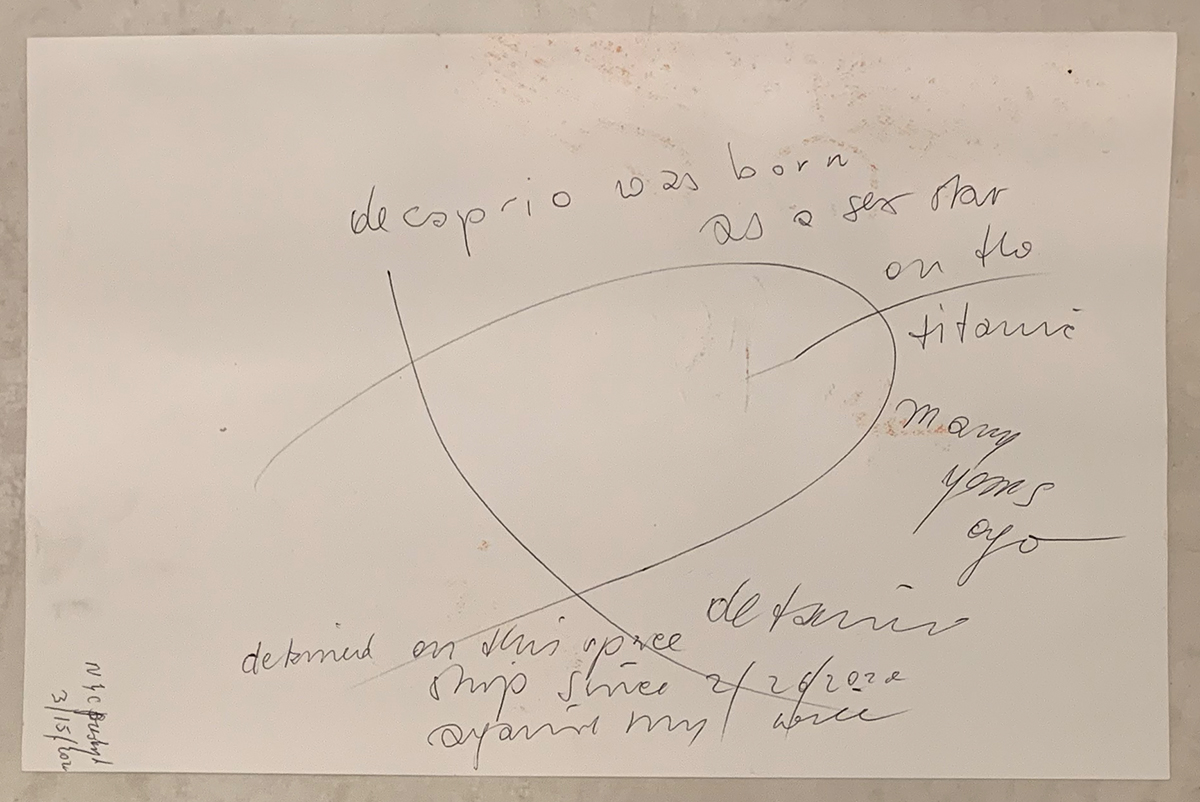 decaprio was born
as a sex star
on the
titanic
many
years
ago
detained on this space
ship since 2/26/2022
against my will
NYC
3/15/202